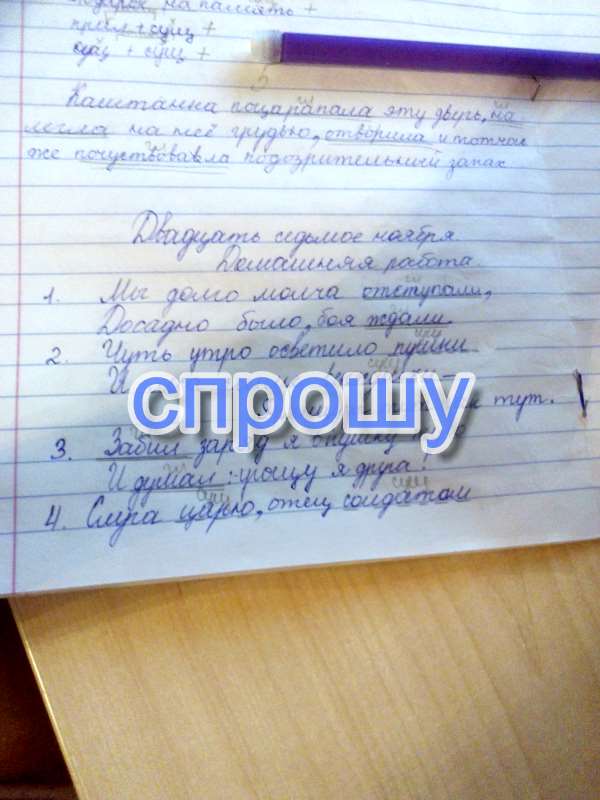 подарок на память +
прил + сущ +
сущ + сущ +
5
Каштанка поцарапала эту дверь, на
легла на неё грудью, отворила и тотчас
же почуствовавла подозрительный запах
Двадцать седьмое ноября.
Домашняя работа.
1. Мы долго молча отступали,
Досадно было, боя ждали
2. Чуть утро осветило пушки
И
спрошу
тут.
3. Забил заряд я в пушку
И думал: угощу я друга!
4. Слуга царю, отец солдатам